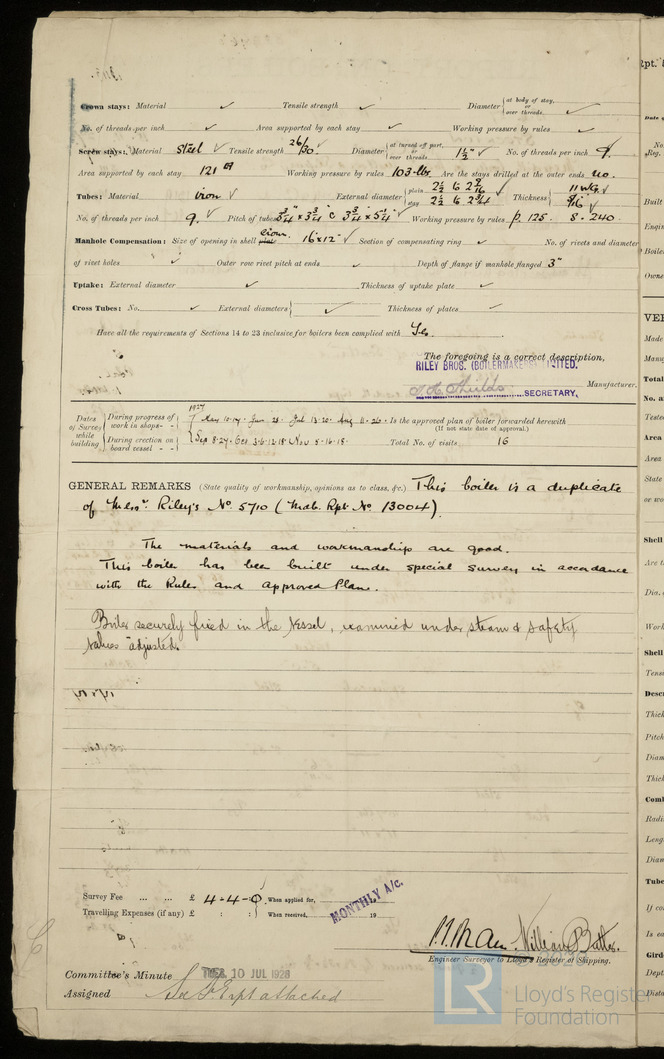 Crown stays: Material ✓ Tensile strength ✓ Diameter {at body of stay, or over threads. ✓
No. of threads per inch ✓ Area supported by each stay ✓ Working pressure by rules ✓
Screw stays: Material Steel ✓ Tensile strength 26/30 ✓ Diameter {at turned off part, or over threads. 1½" ✓ No. of threads per inch 9.
Area supported by each stay 121 Working pressure by rules 103 lbs. Are the stays drilled at the outer ends no.
Tubes: Material iron ✓ External diameter {plain 2½ & 2 9/16 ✓ Thickness {11 WG ✓
stay 2½ & 2¾ 5/16 ✓
No. of threads per inch 9. ✓ Pitch of tubes 3¾" x 3¾" & 3¾ x 5¼" ✓ Working pressure by rules p. 125. S. 240.
Manhole Compensation: Size of opening in shell plate 16"x12" ✓ Section of compensating ring ✓ No. of rivets and diameter
of rivet holes ✓ Outer row rivet pitch at ends ✓ Depth of flange if manhole flanged 3"
Uptake: External diameter ✓ Thickness of uptake plate ✓
Cross Tubes: No. ✓ External diameters { ✓ Thickness of plates ✓
Have all the requirements of Sections 14 to 23 inclusive for boilers been complied with Yes.
The foregoing is a correct description,
RILEY BROS. (BOILERMAKERS) LIMITED.
Shields SECRETARY. Manufacturer.
1927
Dates of Survey while building {During progress of work in shops - - May 10.17. Jun 28. Jul 13.20. Aug 11.26. Is the approved plan of boiler forwarded herewith
(If not state date of approval.)
During erection on board vessel - - Sep 8.27. Oct 3.6.12.18. Nov 8.16.18. Total No. of visits 16
GENERAL REMARKS (State quality of workmanship, opinions as to class, &c.) This boiler is a duplicate
of Messrs. Riley's No. 5710 (Mdb. Rpt. No. 13004).
The materials and workmanship are good.
This boiler has been built under special survey in accordance
with the Rules and Approved Plan.
Boiler securely fixed in the vessel, examined under steam & safety
valves adjusted.
Survey Fee ... ... £ 4 - 4 - 0 } When applied for,
Travelling Expenses (if any) £ : : } When received, 19
MONTHLY A/c.
William Butler.
Engineer Surveyor to Lloyd's Register of Shipping.
Committee's Minute TUES. 10 JUL 1928
Assigned See F.E. rpt attached
LR Lloyd's Register Foundation